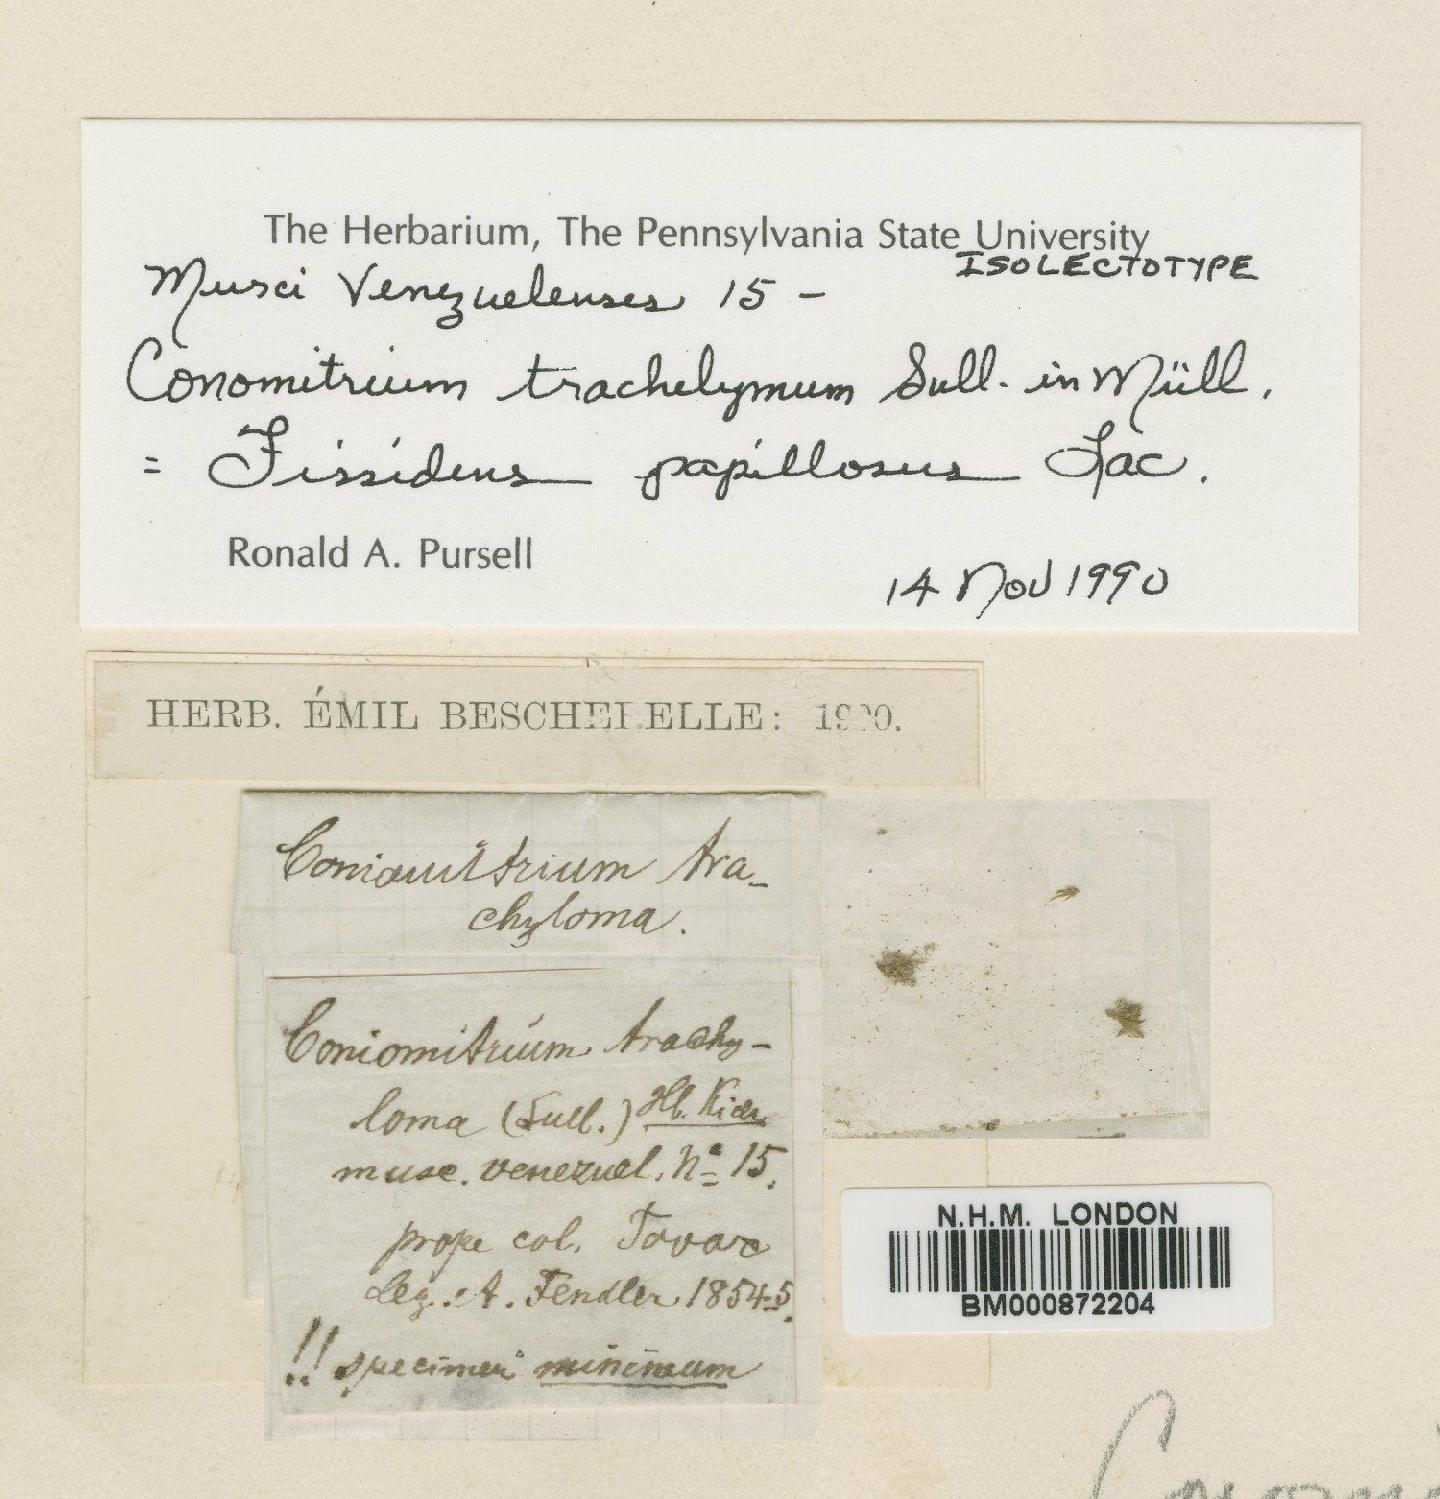 The Herbarium, The Pennsylvania State University
ISOLECTOTYPE
Musci Venezuelenses 15 -
Conomitrium trachelymum Sull. in Müll.
= Fissidens papillosus Lac.
Ronald A. Pursell
14 Nov 1990
HERB. ÉMIL BESCHERELLE: 1900.
Coniomitrium tra-
chyloma.
Coniomitrium trachy-
loma (Sull.) Hb.
musc. venezuel. No 15.
prope col. Tovar
leg. A. Fendler 1854-5.
!! specimen minimum
N.H.M. LONDON
BM000872204